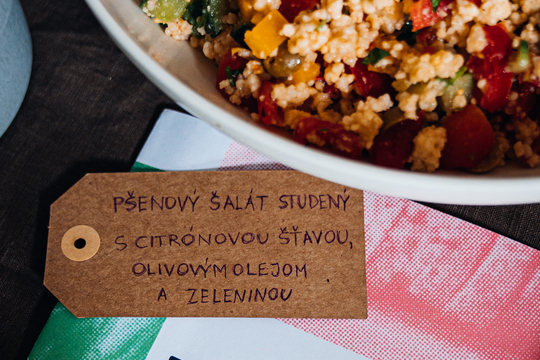 PŠENOVÝ ŠALÁT STUDENÝ
S CITRÓNOVOU ŠŤAVOU,
OLIVOVÝM OLEJOM
A ZELENINOU